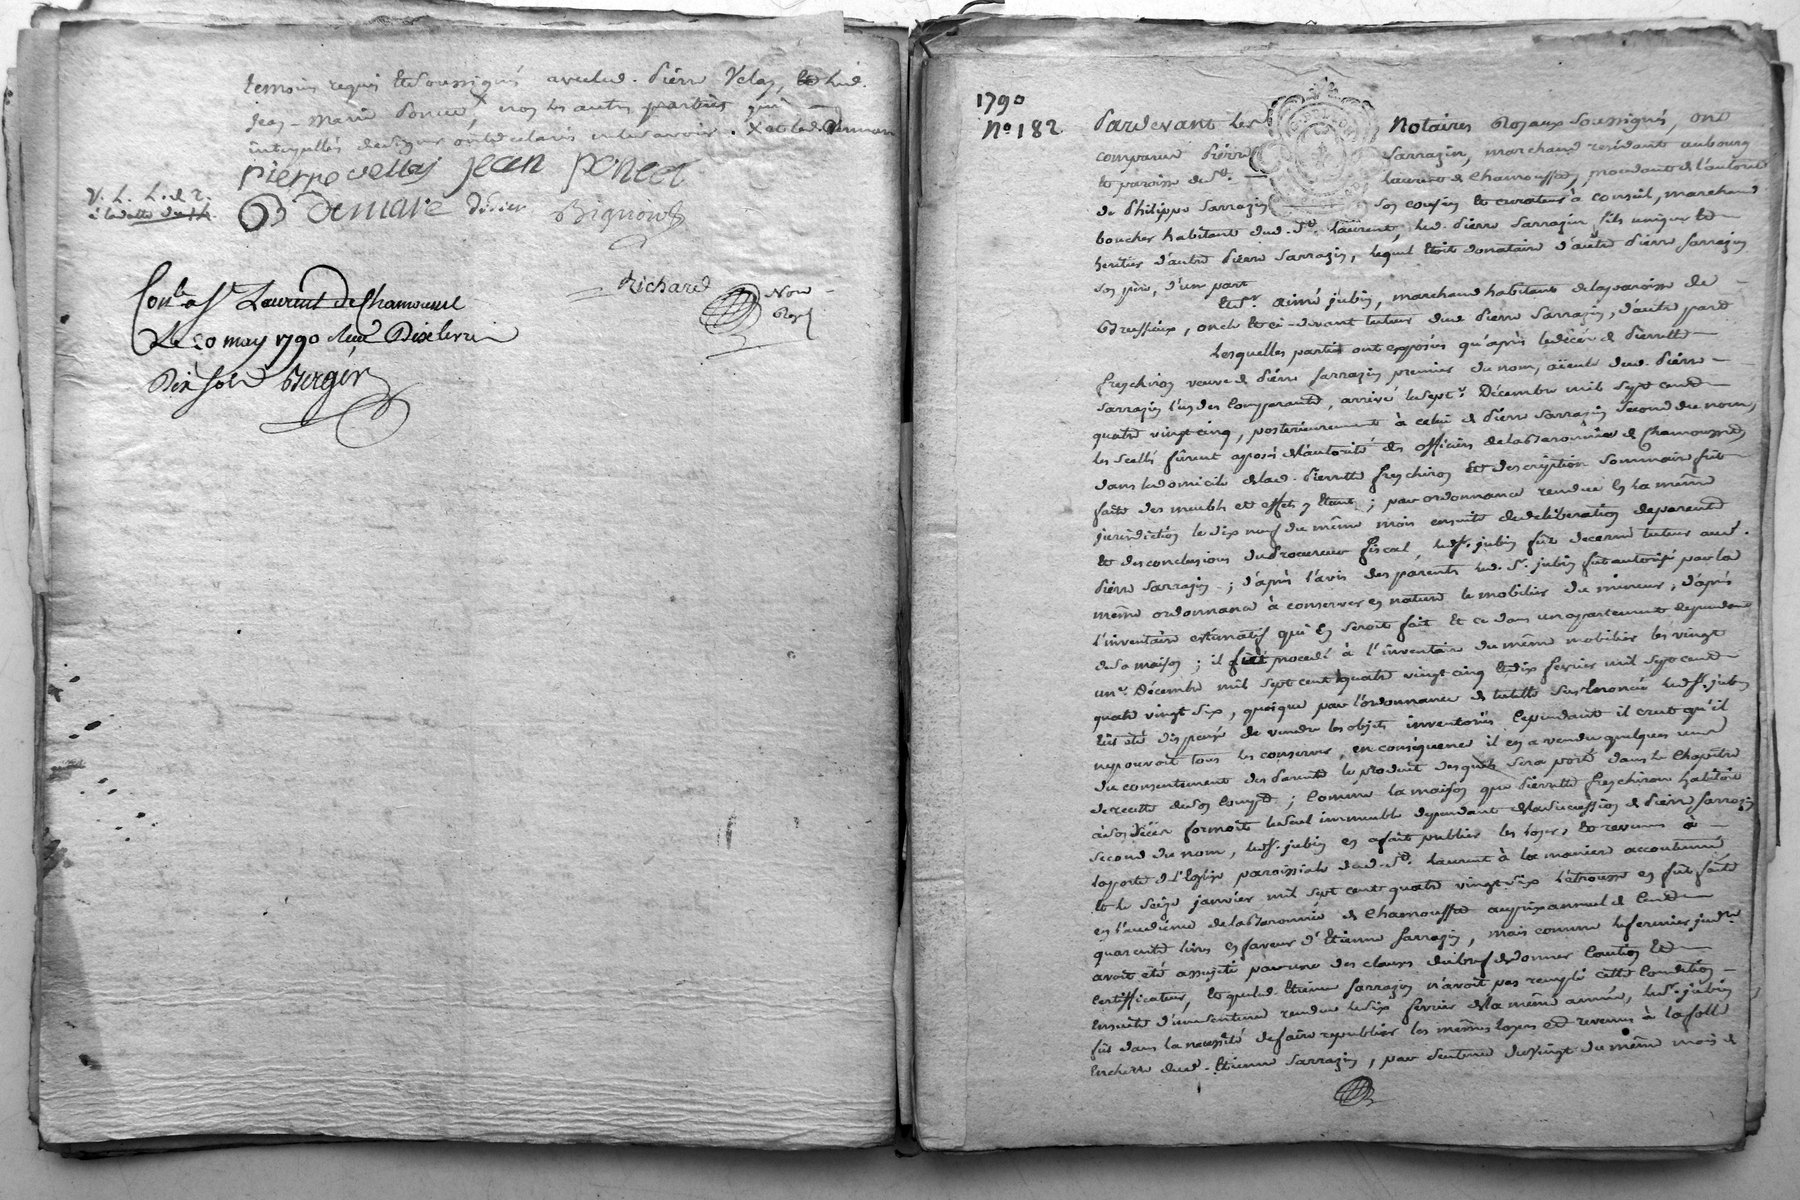 temoins requis et soussignés avec led. Pierre Velay, et led.
Jean-Marie Poncet, non les autres parties qui
interpellés de signer ont déclaré ne le savoir.
pierre vellay jean poncet
Demare Bignon
V. L. L. d. 2.
Richard
Not.
Roy.
Con.lé a St Laurent de Chamousset
Le 20 may 1790 Reçu
Dix sols Bergér
1790
No. 182
Pardevant Les Notaires Royaux soussignés, ont
comparu Pierre Sarrazin, marchand residant au bourg
et paroisse de St. Laurent de Chamousset, procedant de l'autorité
de Philippe Sarrazin son cousin et curateur à conseil, marchand
boucher habitant dud. St. Laurent, led. Pierre Sarrazin fils unique et
heritier d'autre Pierre Sarrazin, lequel étoit donataire d'autre Pierre Sarrazin
son père, d'une part
Et Sr. aimé jubin, marchand habitant de la paroisse de
Brussieux, oncle et ci-devant tuteur dud. Pierre Sarrazin, d'autre part
Lesquelles parties ont exposés qu'après le décès de Pierrette
freschinon veuve de Pierre Sarrazin premier du nom, aïeule dud. Pierre
Sarrazin l'un des comparants, arrivé le sept. Décembre mil sept cent
quatre vingt cinq, posterieurement à celui de Pierre Sarrazin second du nom,
les scellés fûrent aposés de l'autorité des officiers de la Baronnie de Chamousset
dans le domicile de lad. Pierrette freschinon et description sommaire fut
faite des meubles et effets y étant; par ordonnance rendue en la même
jurisdiction le dix neuf du même mois ensuite de deliberation de parents
et des conclusions du Procureur fiscal, led. Sr. jubin fût decerné tuteur aud.
Pierre Sarrazin; d'après l'avis des parents led. Sr. jubin fut autorisé par la
même ordonnance à conserver en nature le mobilier du mineur, d'après
l'inventaire estimatif qui en seroit fait et ce dans un apartement dependant
de sa maison; il fût procedé à l'inventaire du même mobilier les vingt
un. Décembre mil sept cent quatre vingt cinq et dix fevrier mil sept cent
quatre vingt six, quoique par l'ordonnance de tutelle susénoncée led. Sr. jubin
eût été dispensé de vendre les objets inventoriés cependant il crut qu'il
ne pouvoit tous les conserver, en conséquence il en a vendu quelques uns
du consentement des Parents le produit desquels sera porté dans le Chapitre
de recette de son compte; Comme la maison que Pierrette freschinon habitoit
à son décès formoit le seul immeuble dependant de la succession de Pierre Sarrazin
second du nom, led. Sr. jubin en a fait publier les loyers et revenus à
la porte de l'Eglise paroissiale dud. St. Laurent à la maniere accoutumée
et le seize janvier mil sept cent quatre vingt six l'étrousse en fut faite
en l'audience de la Baronnie de Chamousset au prix annuel de Cent
quarente livres en faveur d'Etienne Sarrazin, mais comme le fermier judre
avoit été assujeti par une des clauses du bref de donner Caution et
certifficateur, et que led. Etienne Sarrazin n'avoit pas rempli cette Condition
Ensuite d'une sentence rendue le six fevrier de la même année, led. Sr. jubin
fût dans la necessité de faire republier les mêmes loyers et revenus à la folle
Enchere dud. Etienne Sarrazin, par sentence du vingt du même mois de